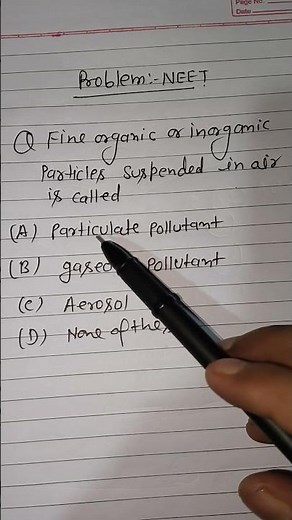 Page No.
Date
Problem:- NEET
Q Fine organic or inorganic
Particles suspended in air
is called
(A) Particulate pollutant
(B) Pollutant
(C) Aerosol
(D) None of the